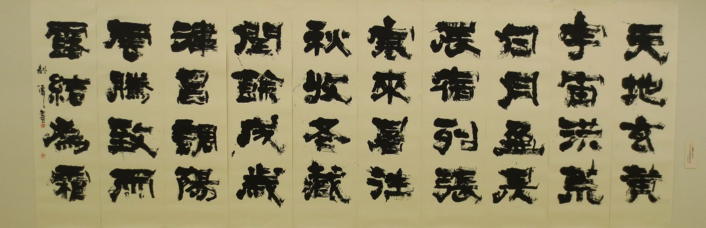 天地玄黃
宇宙洪荒
日月盈昃
辰宿列張
寒來暑往
秋收冬藏
閏餘成歲
律呂調陽
雲騰致雨
露結為霜